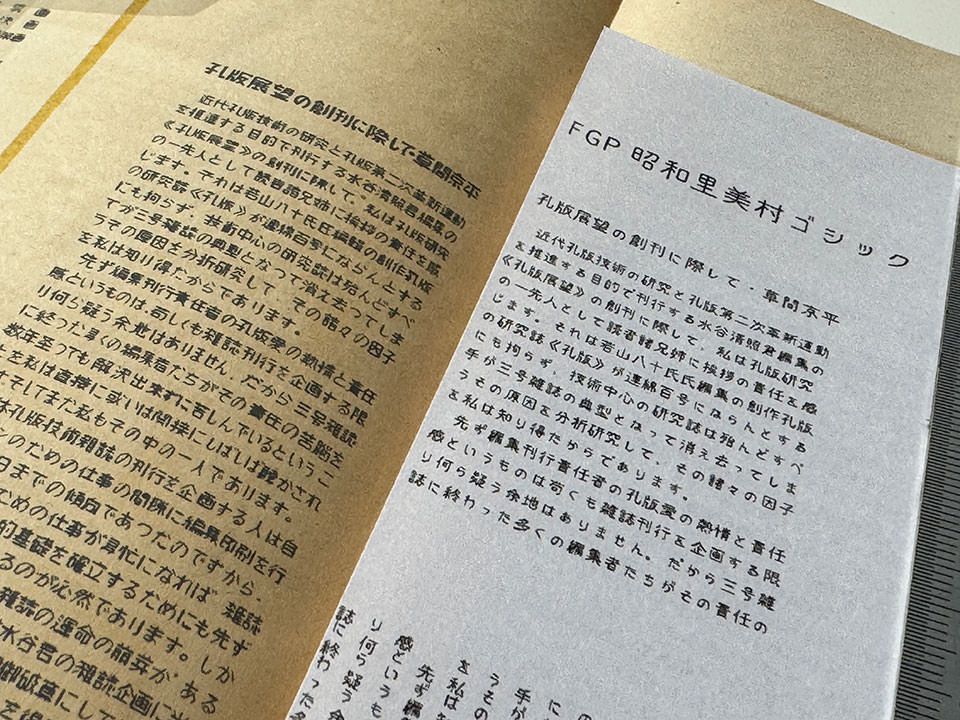 孔版展望の創刊に際して・草間京平
近代孔版技術の研究と孔版第二次革新運動
を推進する目的で刊行する水谷清照君編集の
《孔版展望》の創刊に際して、私は孔版研究
の一先人として読者諸兄姉に挨拶の責任を感
じます。それは若山八十氏氏編輯の創作孔版
の研究誌《孔版》が連綿百号にならんとする
にも拘らず、技術中心の研究誌は殆んどすべ
てが三号雑誌の典型となって消え去ってしま
うその原因を分析研究して、その諸々の因子
を私は知り得たからであります。
先ず編集刊行責任者の孔版愛の熱情と責任
感というものは、苟しくも雑誌刊行を企画する限
り何ら疑う余地はありません。だから三号雑誌
に終った多くの編集者たちがその責任の苦悩を
数年至っても解決出来ずに苦しんでいるというこ
とを私は直接に或いは間接にしばしば聴かされ
そしてまた私もその中の一人であります。
孔版技術雑誌の刊行を企画する人は自
のための仕事の間隙に編集印刷を行
日までの傾向であったのですから、
ための仕事が昇忙になれば 雑誌
的基礎を確立するためにも先ず
るのが必然であります。しか
雑誌の運命の萠芽が ある
水谷君の雑誌企画に
FGP 昭和里美村ゴシック
孔版展望の創刊に際して・草間京平
近代孔版技術の研究と孔版第二次革新運動
を推進する目的で刊行する水谷清照君編集の
《孔版展望》の創刊に際して、私は孔版研究
の一先人として読者諸兄姉に挨拶の責任を感
じます。それは若山八十氏氏編集の創作孔版
の研究誌《孔版》が連綿百号にならんとする
にも拘らず、技術中心の研究誌は殆んどすべ
手が三号雑誌の典型となって消え去ってしま
うその原因を分析研究して、その諸々の因子
を私は知り得たからであります。
先ず編集刊行責任者の孔版愛の熱情と責任
感というものは苟くも雑誌刊行を企画する限
り何ら疑う余地はありません。だから三号雑
誌に終わった多くの編集者たちがその責任の
を私は
先ず編
感というも
り何ら疑う余
誌に終わった多